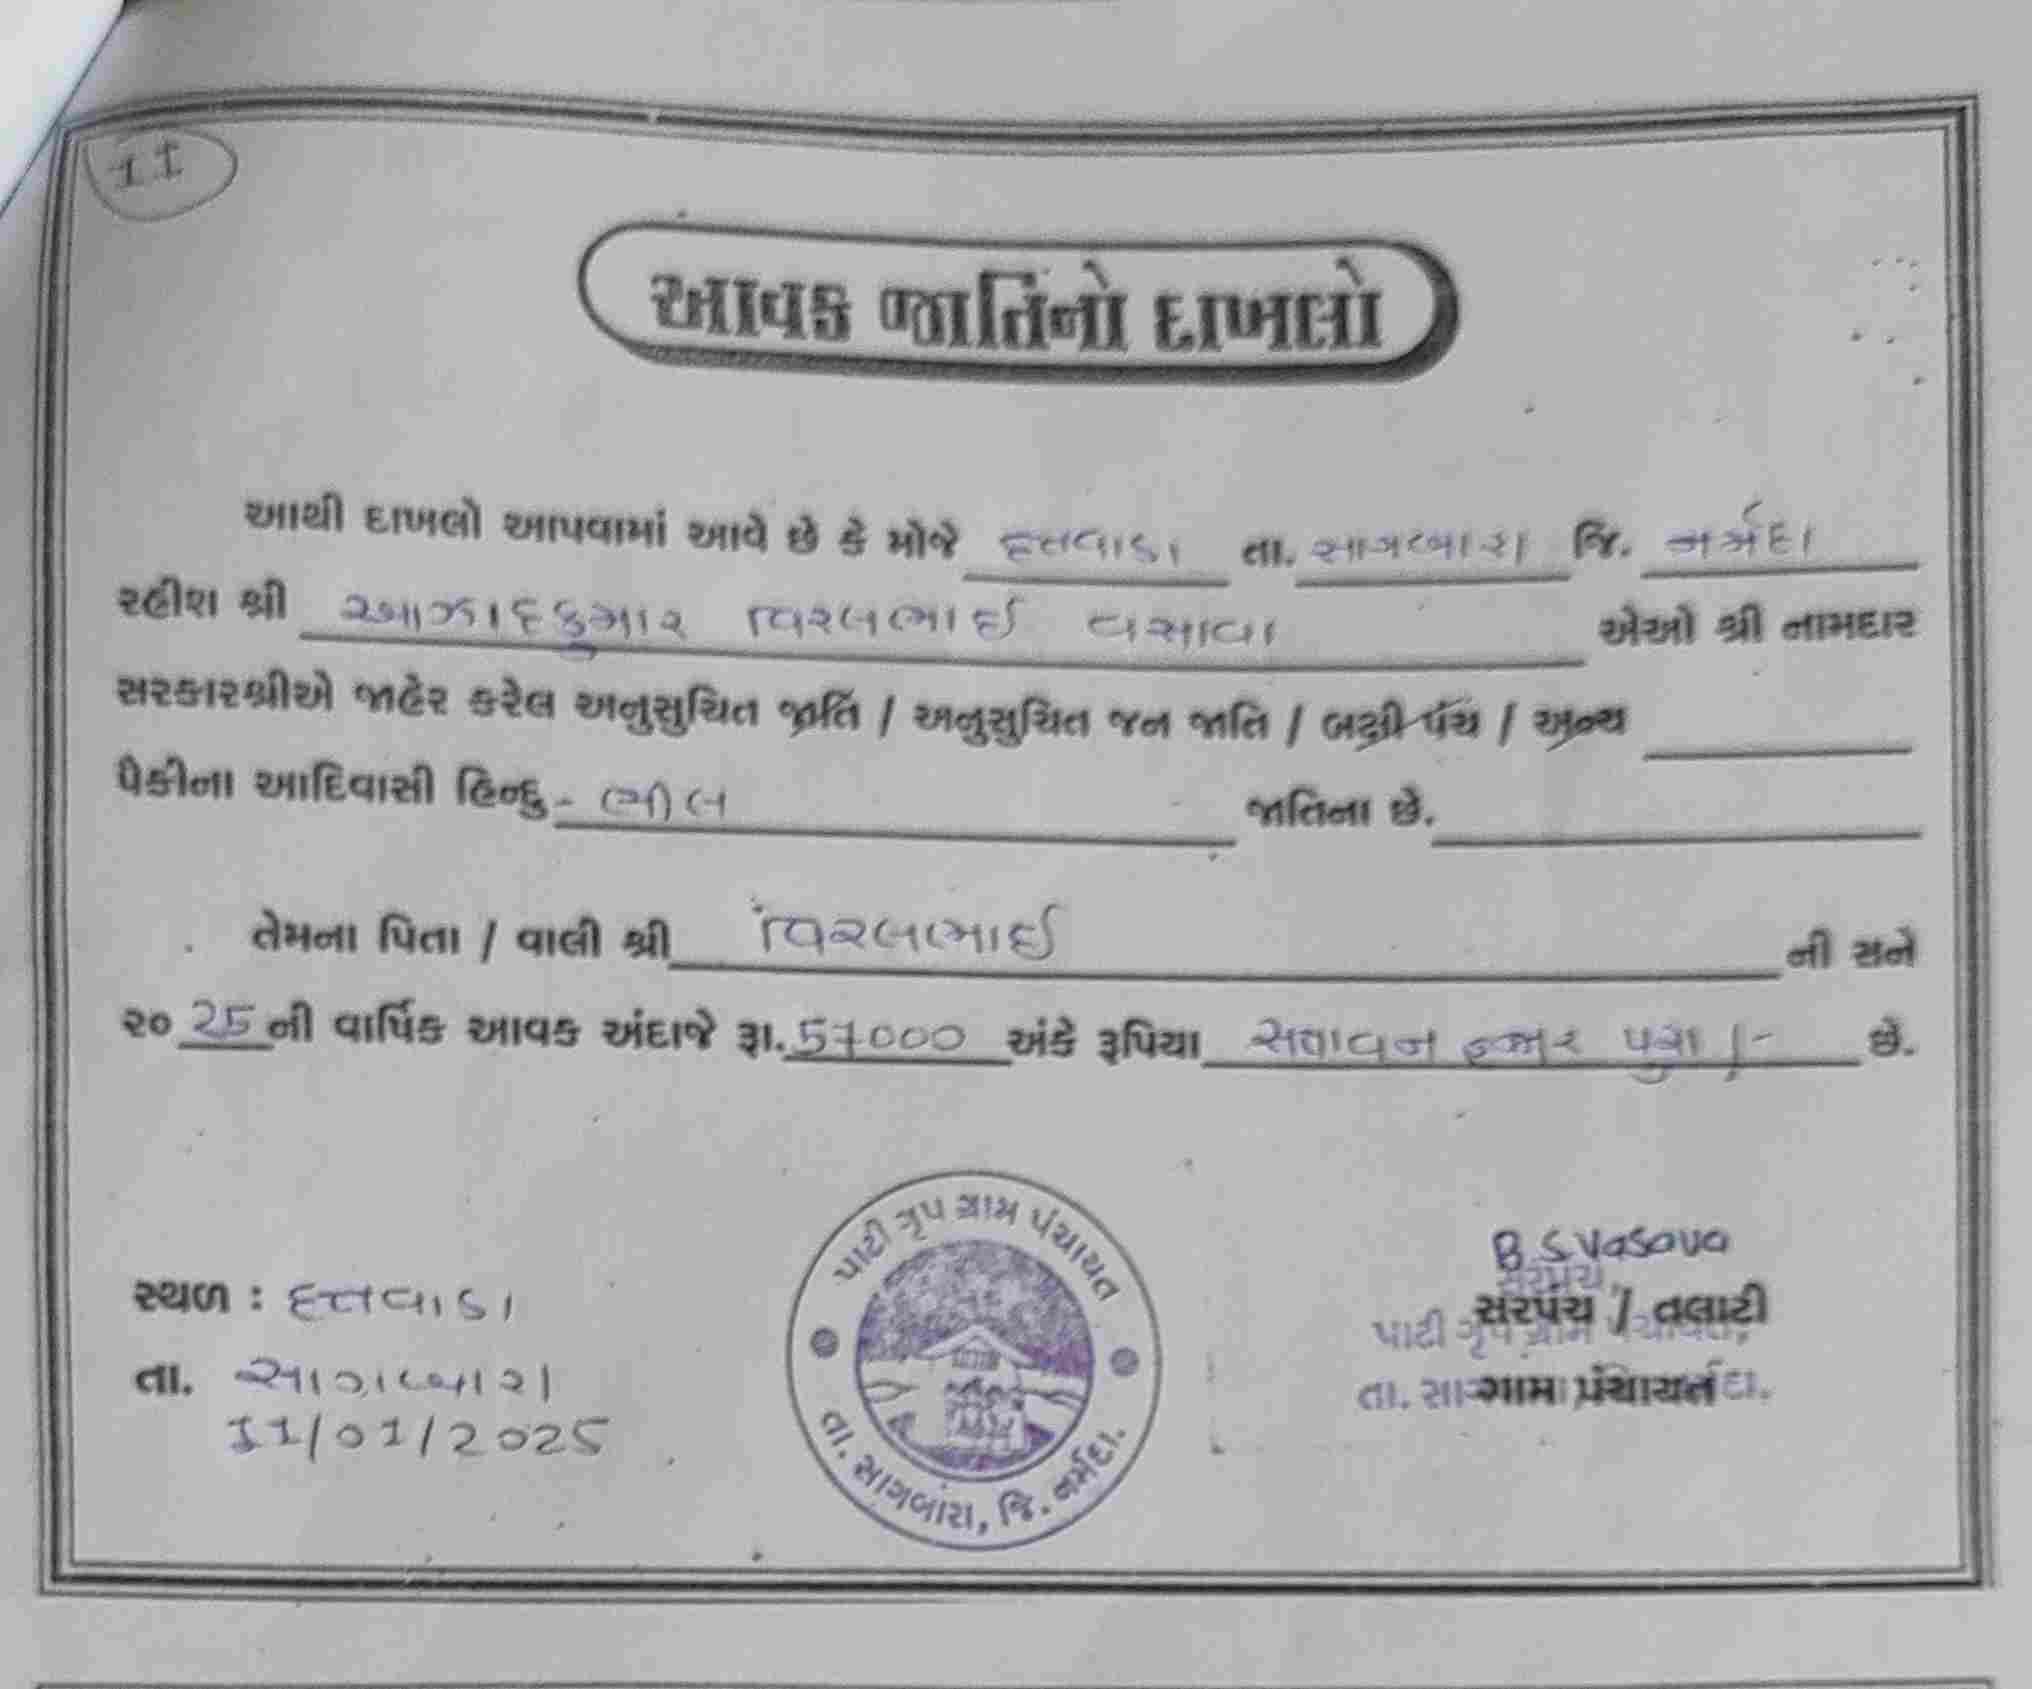 11
આવક જાતિનો દાખલો
આથી દાખલો આપવામાં આવે છે કે મોજે દત્તવાડા તા. સાગબારા જિ. નર્મદા
રહીશ શ્રી આઝાદકુમાર વિરલભાઈ વસાવા એઓ શ્રી નામદાર
સરકારશ્રીએ જાહેર કરેલ અનુસુચિત જાતિ / અનુસુચિત જન જાતિ / બક્ષી પંચ / અન્ય
પૈકીના આદિવાસી હિન્દુ - ભીલ જાતિના છે.
તેમના પિતા / વાલી શ્રી વિરલભાઈ ની સને
૨૦ 25 ની વાર્ષિક આવક અંદાજે રૂા. 57000 અંકે રૂપિયા સત્તાવન હજાર પુરા /- છે.
પાટી ગૃપ ગ્રામ પંચાયત
તા. સાગબારા, જિ. નર્મદા.
B. S. Vasava
સરપંચ
સરપંચ / તલાટી
પાટી ગૃપ ગ્રામ પંચાયત,
ગ્રામ પંચાયત
સ્થળ : દત્તવાડા
તા. સાગબારા
11/01/2025